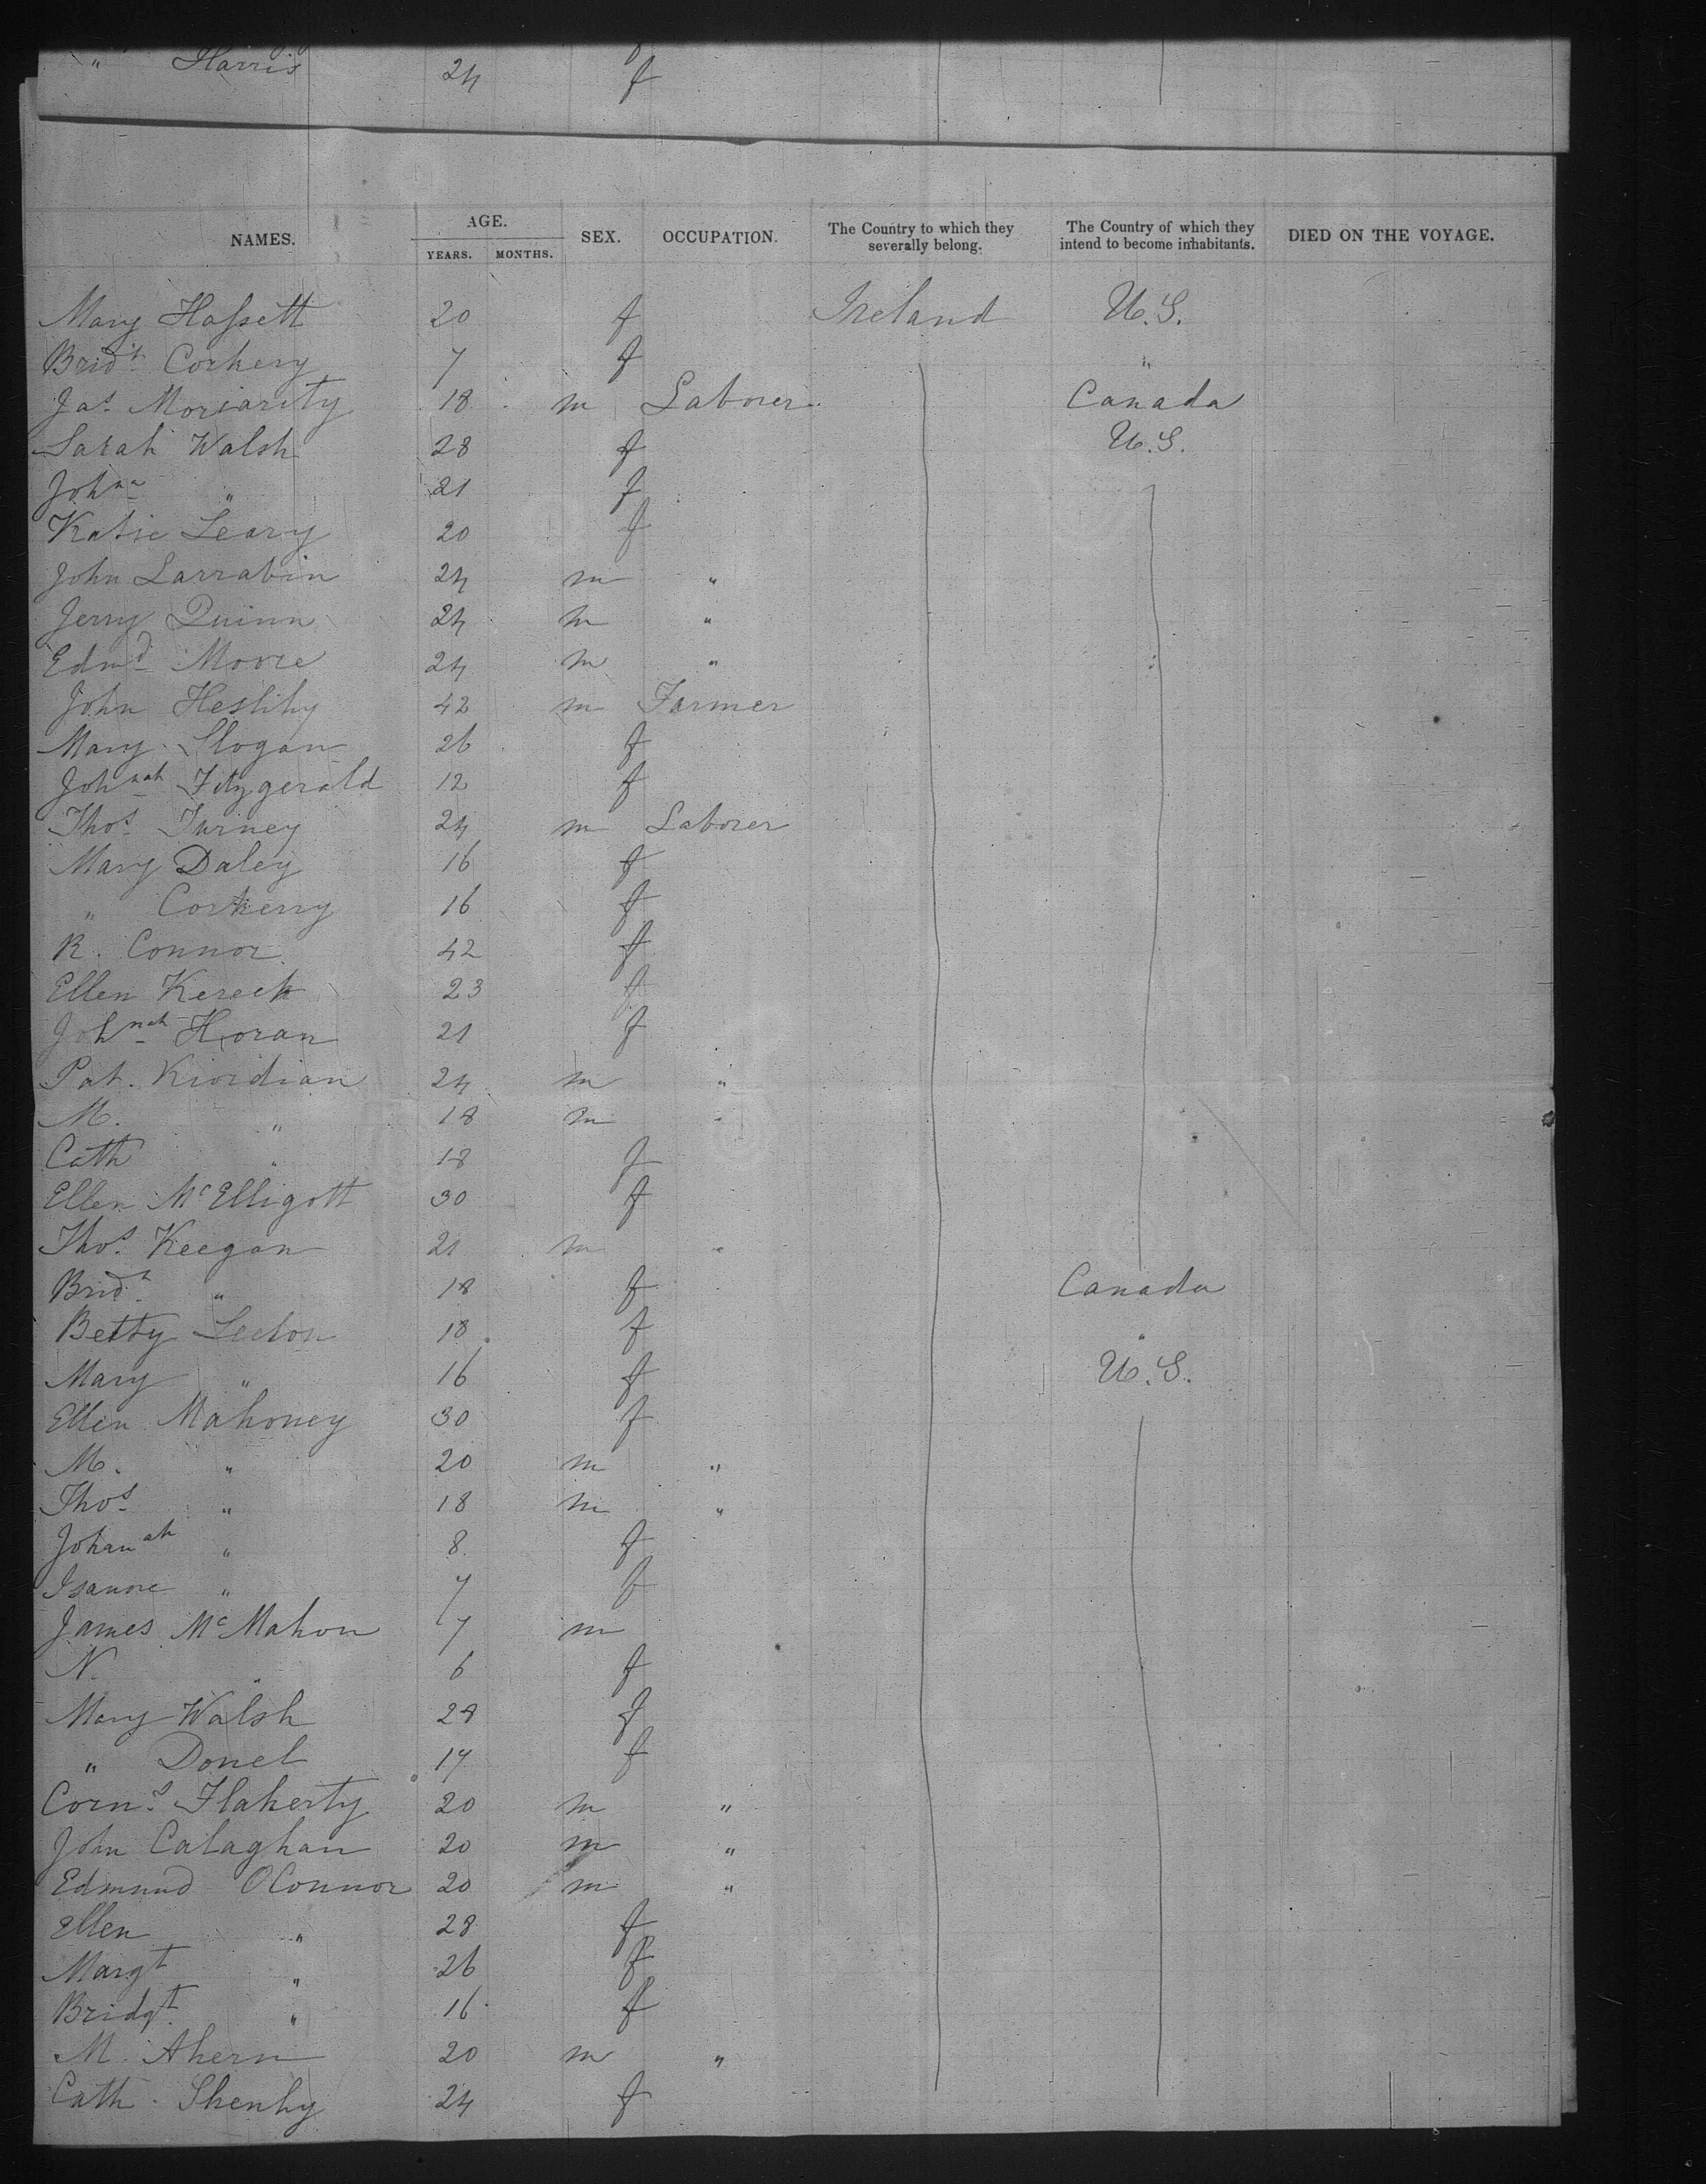 " Harris 24 f
NAMES. AGE. YEARS. MONTHS. SEX. OCCUPATION. The Country to which they severally belong. The Country of which they intend to become inhabitants. DIED ON THE VOYAGE.
Mary Hassett 20 f Ireland U.S.
Bridt. Corkery 7 f "
Jas. Moriarity 18 m Laborer Canada
Sarah Walsh 28 f U.S.
Johna " 21 f
Katie Leary 20 f
John Larrabin 24 m "
Jerry Quinn 24 m "
Edmd Moore 24 m "
John Heslihy 42 m Farmer
Mary Slogan 26 f
Johnah Fitzgerald 12 f
Thos Turney 24 m Laborer
Mary Daley 16 f
" Corkerry 16 f
R. Connor 42 f
Ellen Kereck 23 f
Johnah Horan 21 f
Pat. 24 m "
M. " 18 m "
Cath " 18 f
Ellen McElligott 30 f
Thos. Keegan 21 m "
Bridt. " 18 f Canada
Betty 18 f "
Mary " 16 f U.S.
Ellen Mahoney 30 f
M. " 20 m "
Thos " 18 m "
Johanah " 8 f
" 7 f
James McMahon 7 m
N. " 6 f
Mary Walsh 28 f
" Donel 17 f
Corns. Flaherty 20 m "
John Calaghan 20 m "
Edmund OConnor 20 m "
Ellen " 28 f
Margt " 26 f
Bridgt. " 16 f
M. Ahern 20 m "
Cath. Shenhy 24 f